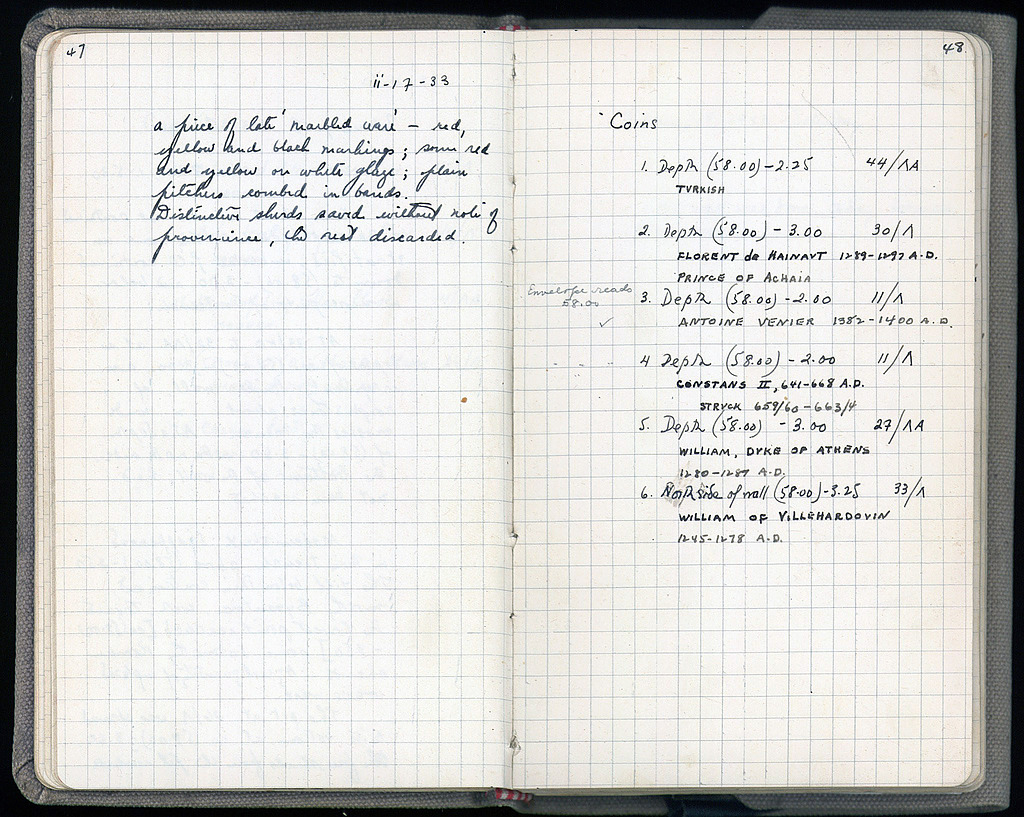 47
ii-17-33
a piece of late 'marbled ware' – red,
yellow and black markings; some red
and yellow on white glaze; plain
pitchers combed in bands.
Distinctive sherds saved without note of
provenience, the rest discarded.
48
Coins
1. Depth (58.00) – 2.25 44/ΛΑ
TURKISH
2. Depth (58.00) – 3.00 30/Λ
FLORENT de HAINAUT 1289–1297 A.D.
PRINCE OF ACHAIA
Envelope reads
58.00
3. Depth (58.00) – 2.00 11/Λ
✓
ANTOINE VENIER 1382–1400 A.D.
4 Depth (58.00) – 2.00 11/Λ
CONSTANS II, 641–668 A.D.
STRUCK 659/60–663/4
5. Depth (58.00) – 3.00 27/ΛΑ
WILLIAM, DUKE OF ATHENS
1280–1287 A.D.
6. North side of wall (58.00) – 3.25 33/Λ
WILLIAM OF VILLEHARDOUIN
1245–1278 A.D.